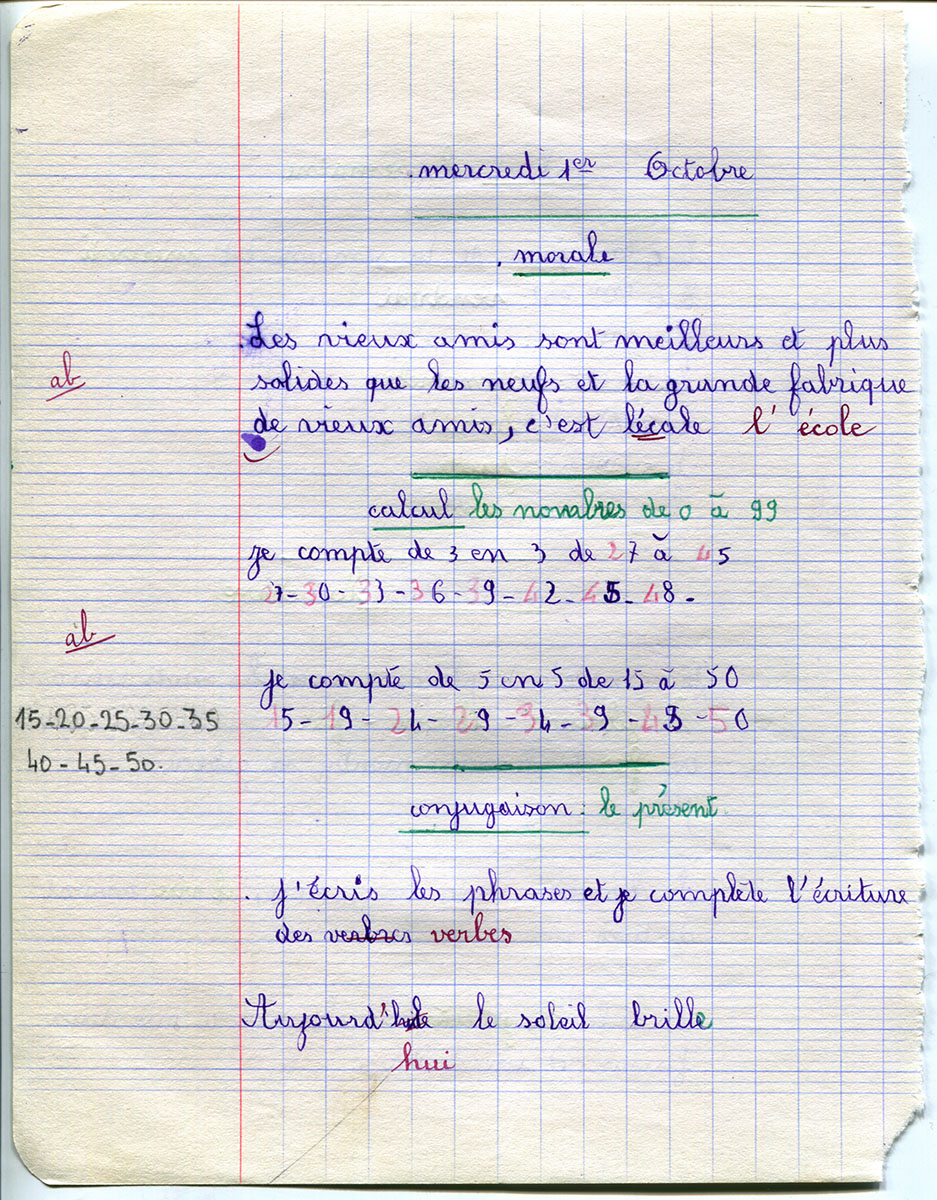 mercredi 1er Octobre
morale
Les vieux amis sont meilleurs et plus
ab
solides que les neufs et la grande fabrique
de vieux amis, c'est lécale l'école
calcul les nombres de 0 à 99
je compte de 3 en 3 de 27 à 45
27-30-33-36-39-42-45-48-
ab
je compte de 5 en 5 de 15 à 50
15-20-25-30-35
15-19-24-29-34-39-43-50
40-45-50.
conjugaison: le présent
. j'écris les phrases et je complète l'écriture
des verbes
Aujourd' le soleil brille
hui